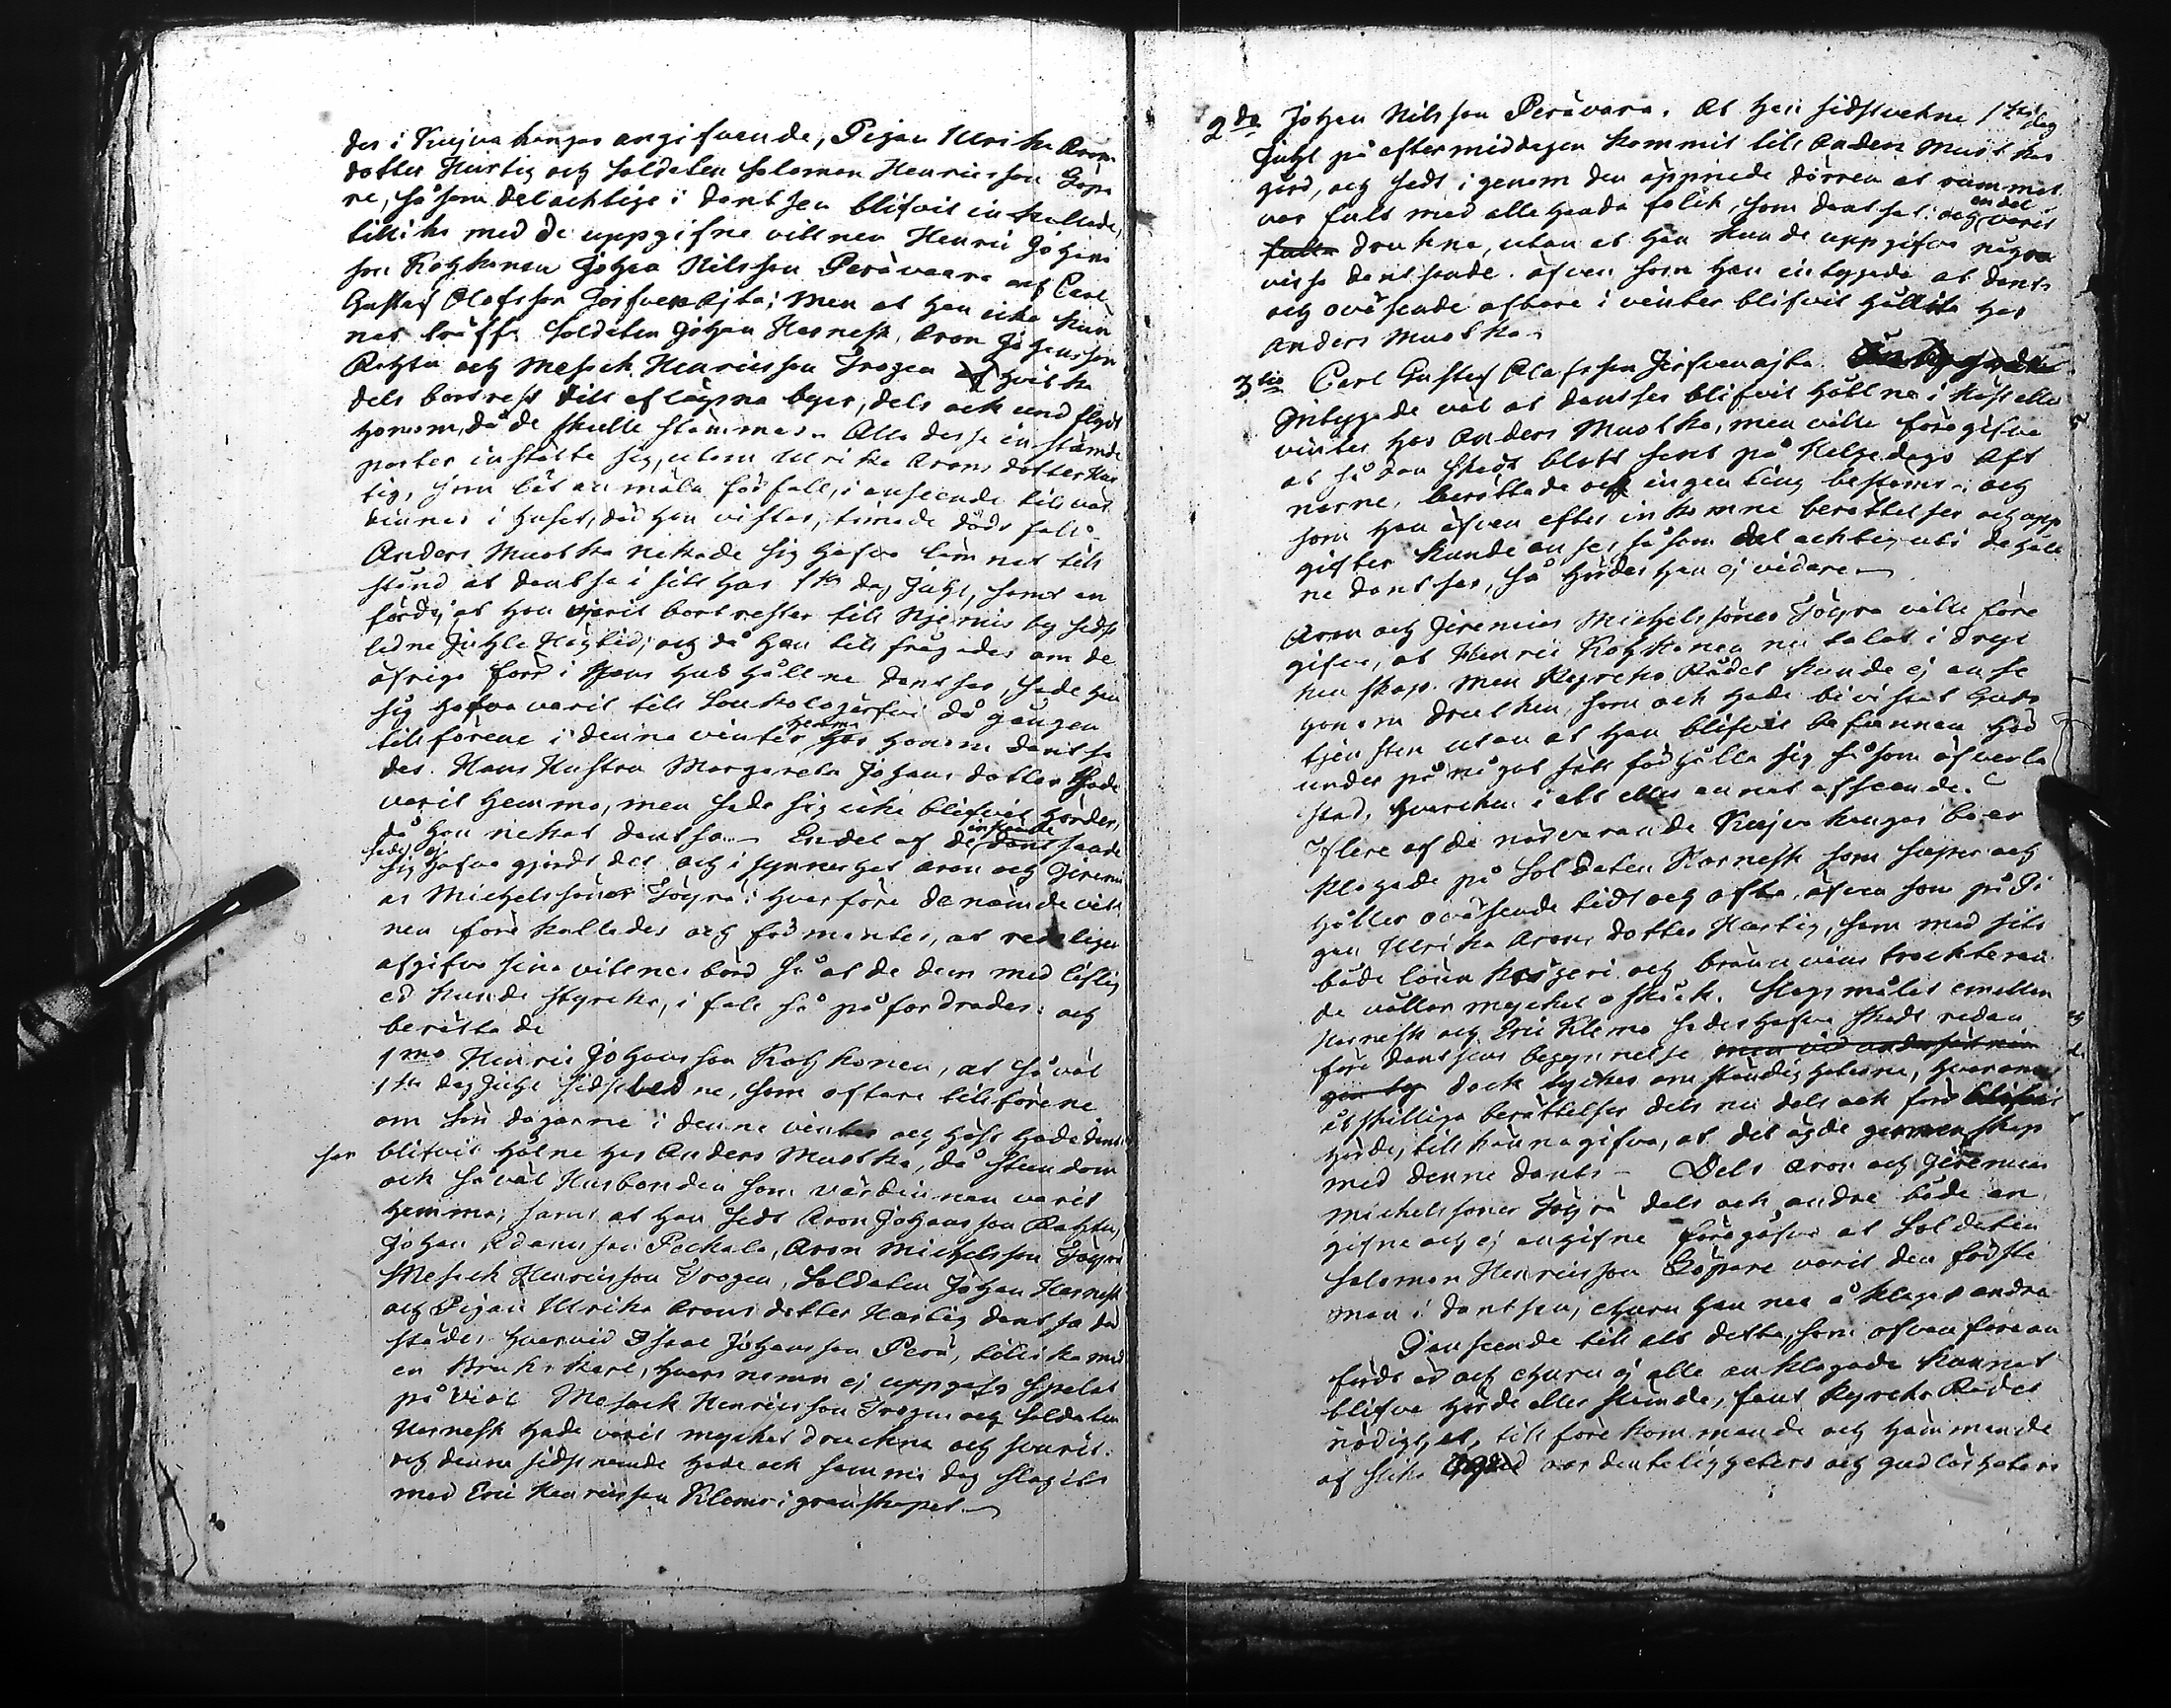 des i Kujva kangas angifvande, Pigan Ulrika Arons
dotter Hurtig och Soldaten Salomon Henricsson Göpa
re, såsom delachtige i dantsen blifvit inkallade,
tillika med de uppgifne vittnen Henric Johans
son Kohkonen Johan Nilsson Perävaara och Carl
Gustaf Olofsson Jerfvenajta; men at han icke kun
nat träffa Soldaten Johan Harnesk, Aron Johansson
Rahtu och Mesach Henricsson Trogen hvilka
dels bortrest till aflägsna byar, dels ock undflydt
honom, då de skulle stämmas. Alla desse instämde
parter instälte sig, utom Ulrika Arons dotter Hur
tig, som låt anmäla förfall, i anseende till vär
dinnas i huset, där hon vistas, timade dödsfall.
Anders Muotka nekade sig hafva lämnat till
stånd at dantsa i sitt hus 1sta dag Juhl, samt an
förde, at han varit bortrester till Njemis by sidst
ledne Juhle Högtid; och då han tillfrågades om de
öfriga förr i hans hus hållne dantsar, sade han
sig hafva varit till Soukolojärfvi då gången
tillförene i denna vinter hemma hos honom dantsa
des. Hans Hustru Margareta Johans dotter hade
varit hemma, men sade sig icke blifvit hörder,
då hon nekat dantsa. En del af de instämde dantsande
sade sig ej hafva gjordt det och i synnerhet Aron och Jeremi
as Michelssöner Töyrä: hvarföre de nämde vitt
nen förekallades och förmantes, at redeligen
afgifva sina vittnesbörd så at de dem med liflig
ed kunde styrcka, i fall så påfordrades: och
berättade
1mo Henric Johansson Kohkonen, at såväl
1sta dag Juhl sidstledne, som oftare tillförene
om Söndagarne i denne vinter och höst hade dant
sar blifvit hålne hos Anders Muotka, då stundom
ock såväl Husbonden som värdinnan varit
hemma; samt at han sedt Aron Johansson Rahtu,
Johan Adamsson Peckala, Aron Michelsson Töyrä
Mesach Henricsson Trogen, Soldaten Johan Harnesk
och Pigan Ulrika Arons dotter Hurtig dantsa där
städes hvarvid Isaac Johansson Perä, tillika med
en Bruks Karl, hvars namn ej uppgafs spelat
på Viol. Mesach Henricsson Trogen och Soldaten
Harnesk hade varit mycket druckna och svurit.
och denne sidstnämde hade ock samma dag slagits
med Eric Henricsson Klemo i granskapet.
2do Johan Nilsson Perävara. At han sidstvekne 1sta dag
Juhl på eftermiddagen kommit till Anders Muotkas
gård, och sedt igenom den öppnade dörren at rummet
var fult med allehanda folck, som dantsat: och en del varit
druckna, utan at han kunde uppgifva några
vissa dantsande. äfven som han intygade at dants
och oväsende oftare i vinter blifvit hållit hos
Anders Muotka.
3tio Carl Gustaf Olofsson Jerfvenajta.
Intygade väl at dantser blifvit hållne i höst eller
vinter hos Anders Muotka, men ville föregifva
at sådan skedt blott sent på Helgedags Aft
narne, berättade och ingen ting bestämt: och
som han äfven efter inkomne berättelser och upp
gifter kunde anses såsom delachtig uti de håll
ne dantsar, så hördes han ej vidare.
Aron och Jeremias Michelssöner Töyrä ville före
gifva, at Henric Kohkonen nu talat i dryc
kenskap. men Kyrcko Rådet kunde ej anse
honom drucken, som ock hade bivistat Guds
tjensten utan at han blifvit befunnen här
under på något sätt förhålla sig såsom öfverla
stad, hvarcken i ett eller annat afseende.
Flere af de närvarande Kujva kangas boer
klagade på Soldaten Harnesk som super och
håller oväsende tidt och ofta, äfven som på Pi
gan Ulrika Arons dotter Hurtig, som med sitt
både lönkrögeri och bränvins trackteran
de vållar mycket oskick. Slagsmålet emellan
Harnesk och Eric Klemo sades hafva skedt redan
före dantsens begynnelse
dock tyckes omständigheterne, hvarom
åtskilliga berättelser dels nu dels ock förr
hörde, tillkännagifva, at det ägde gemenskap
med denne dants. Dels Aron och Jeremias
Michelssöner Töyrä dels ock andra både an
gifne och ej angifne föregåfvo at Soldaten
Salomon Henricsson Göpare varit den förste
man i dantsen, churu han nu åklagat andra
I anseende till alt detta, som ofvanföre an
fördt är och churu ej alla anklagade kunnat
blifva hörde eller stämde, fant Kyrcko Rådet
nödigt, at, till förekommande och hämmande
af slika oordenteligheters och gudlösheters